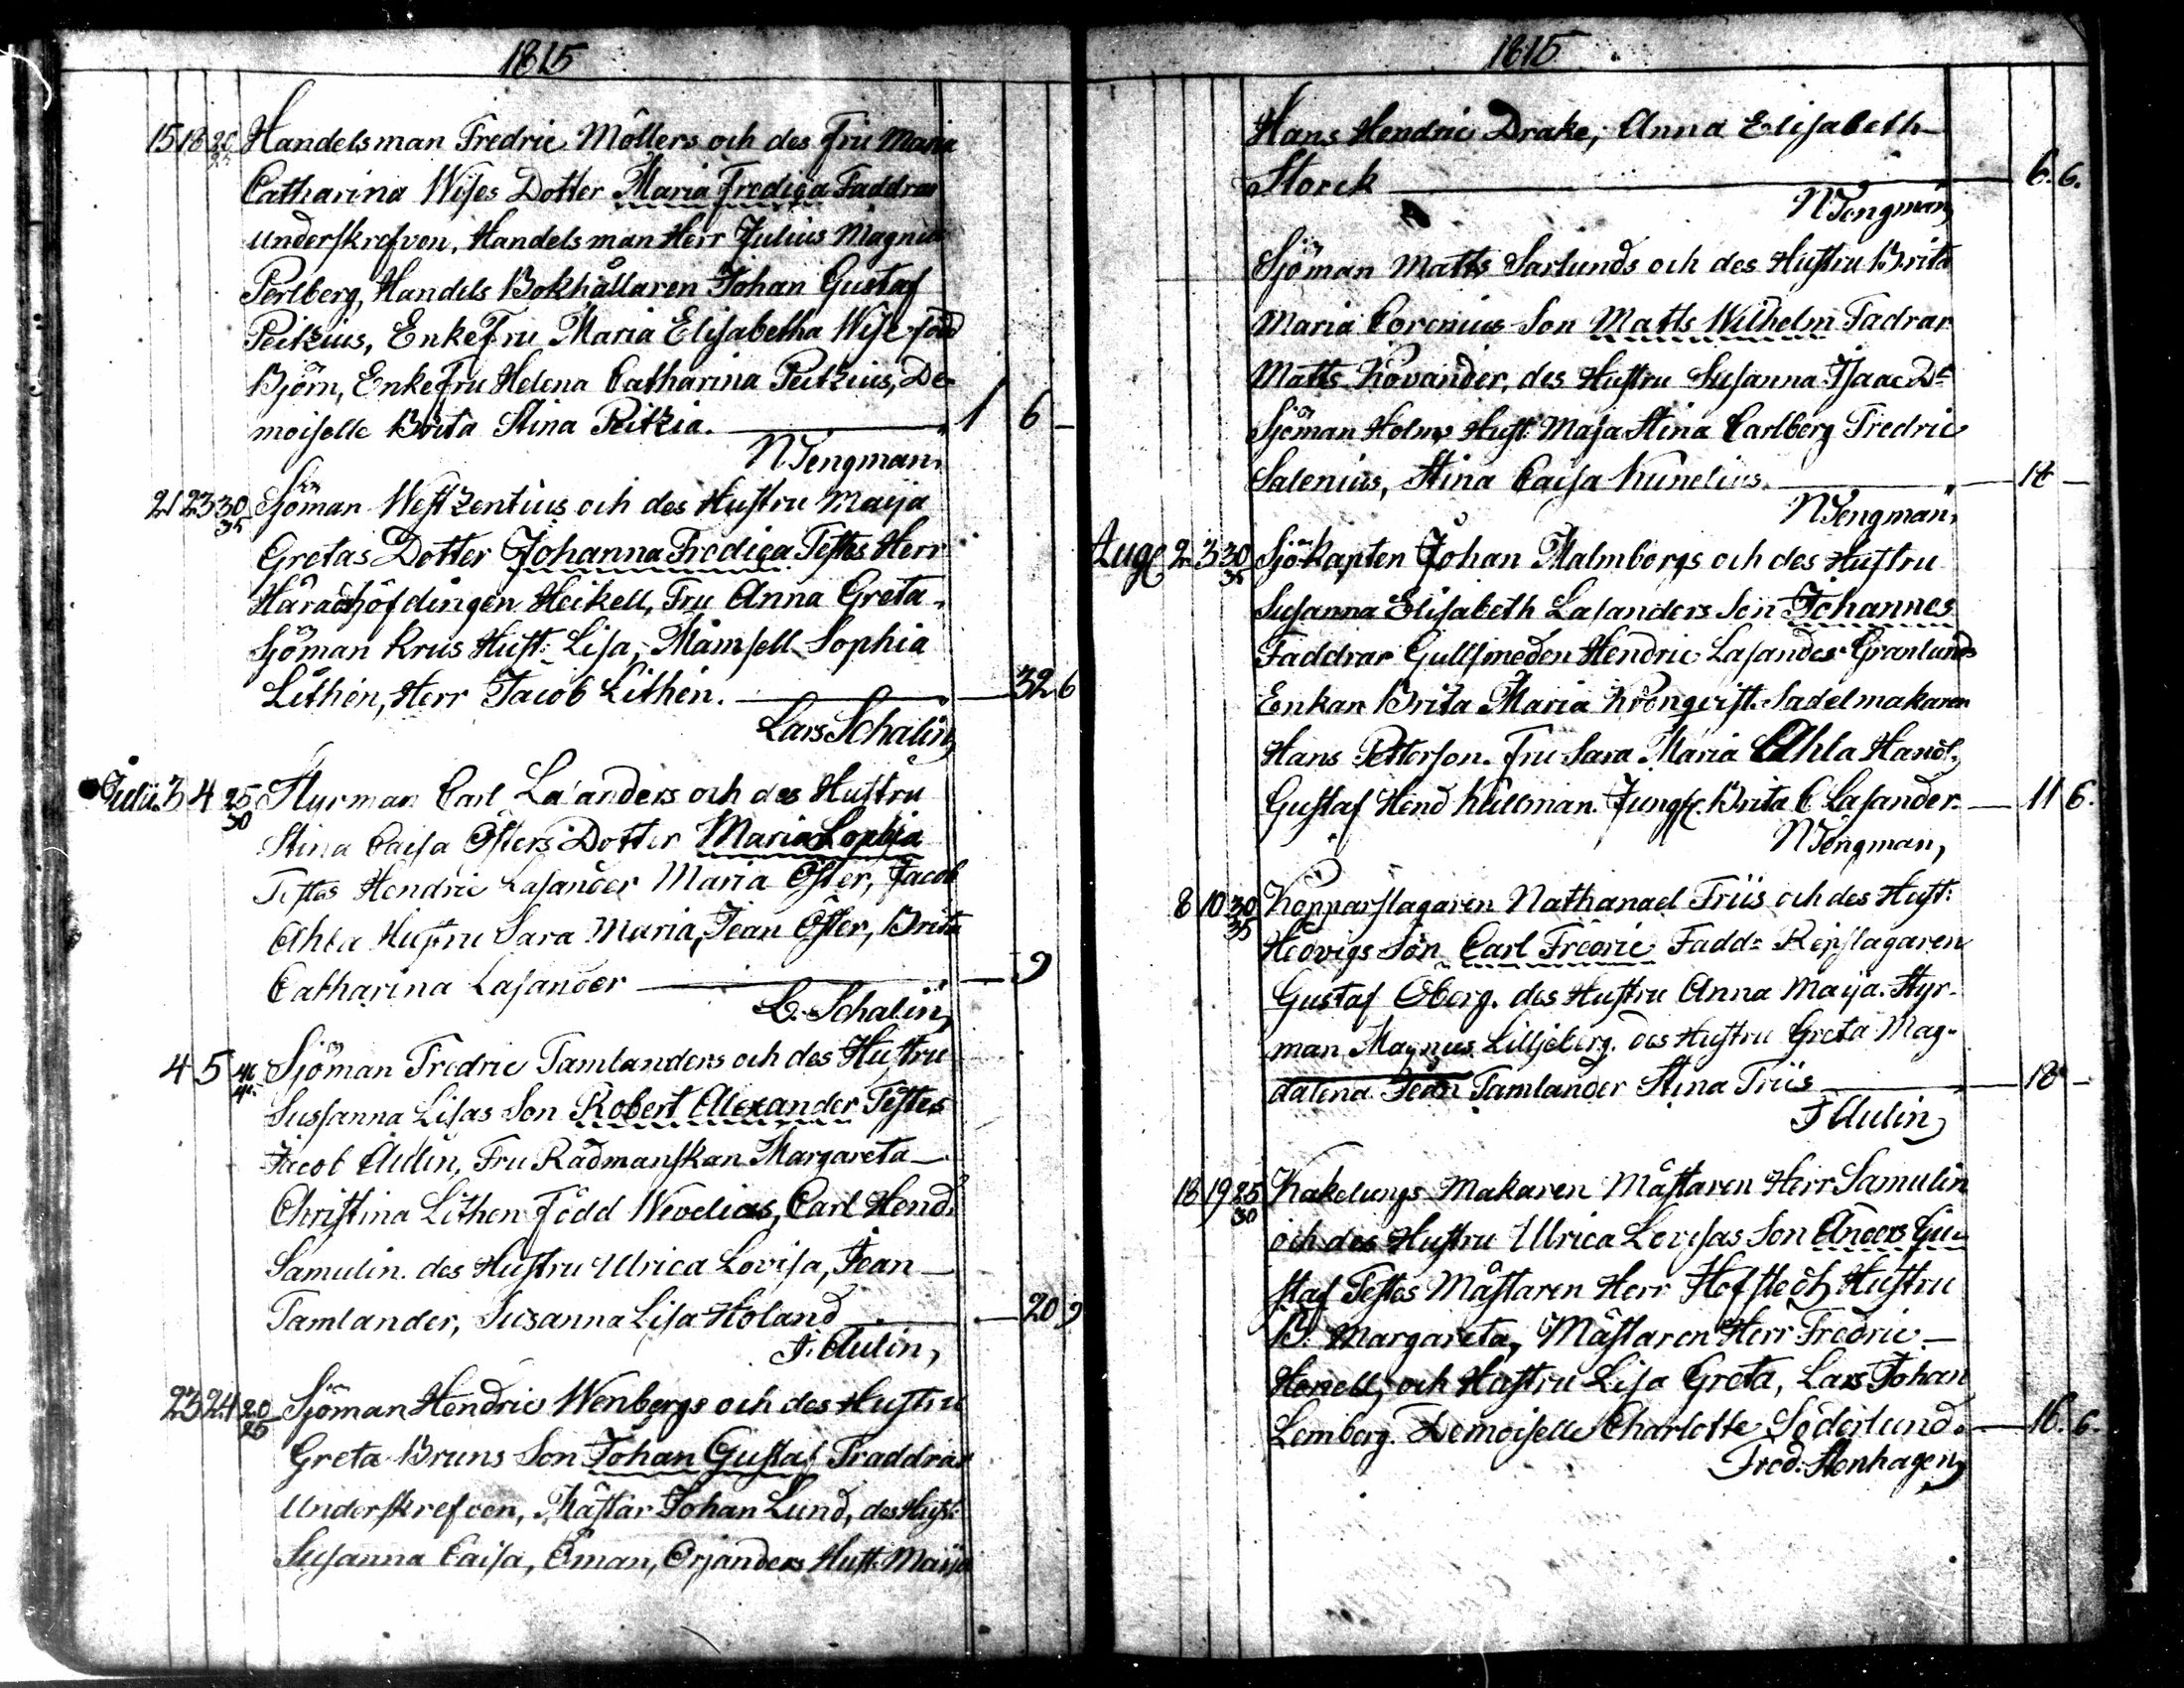 1815
15 18 20/25 Handelsman Fredric Möllers och des Fru Maria
Catharina Wises Dotter Maria Fredica Faddrar
underskrefven, Handelsman Herr Julius Magnus
Perlberg, Handels Bokhållaren Johan Gustaf
Peitzius, EnkeFru Maria Elisabetha Wise född
Björn, EnkeFru Helena Catharina Peitzius, De-
moiselle Brita Stina Peitzia. 1 6 –
N Tengman,
21 23 30/35 Sjöman Westzentius och des Hustru Maija
Gretas Dotter Johanna Fredica Testes Herr
Häradshöfdingen Heikell, Fru Anna Greta
Sjöman Krus Hust: Lisa, Mamsell Sophia
Lithén, Herr Jacob Lithén. 32 6
Lars Schalin,
Julii 3 4 25/30 Styrman Carl Lasanders och des Hustru
Stina Caisa Östers Dotter Maria Sophia
Testes Hendric Lasander Maria Öster, Jacob
Ahla Hustru Sara Maria, Jean Öster, Brita
Catharina Lasander 9
L. Schalin,
4 5 Sjöman Fredric Tamlanders och des Hustru
Sussanna Lisas Son Robert Alexander Testes
Jacob Aulin, Fru Rådmanskan Margareta
Christina Lithen Född Wevelias, Carl Hend:
Samulin. des Hustru Ulrica Lovisa, Jean
Tamlander, Susanna Lisa Holand 20 9
J. Aulin,
23 24 20/25 Sjöman Hendric Wenbergs och des Hustru
Greta Bruns Son Johan Gustaf Faddrar
Underskrefven, Mästar Johan Lund, des Hust:
Susanna Caisa, Öman, Orjanders Hust: Maija
1815
Hans Hendric Drake, Anna Elisabeth
Storck 6. 6.
N Tengman,
Sjöman Matts Sarlunds och des Hustru Brita
Maria Corenius Son Matts Wilhelm Fadrar
Matts Kovander, des Hustru Susanna Isaac Dr
Sjöman Holms Hust: Maja Stina Carlberg Fredric
Salenius, Stina Caisa Kunelius. –
N Tengman,
Aug 2 3 30/35 Sjökapten Johan Malmbergs och des Hustru
Susanna Elisabeth Lasanders Son Johannes
Faddrar Gullsmeden Hendric Lasander Granlunds
Enkan Brita Maria Kronqvist. Sadelmakaren
Hans Petterson. Fru Sara Maria Ahla Handl.
Gustaf Hend Kullman. Jungf. Brita C Lasander. 11 6.
N Tengman,
8 10 30/35 Kopparslagaren Nathanael Friis och des Hust:
Hedvigs Son Carl Fredric Fadd: Repslagaren
Gustaf Öberg. des Hustru Anna Maija. Styr-
man Magnus Liljeberg. des Hustru Greta Mag-
dalena Jean Tamlander Stina Friis 18 –
J Aulin,
18 19 25/30 Kakelungs Makaren Mästaren Herr Samulin
och des Hustru Ulrica Lovisas Son Anders Gu-
staf Testes Mästaren Herr Hofstedt, Hustru
B. Margareta, Mästaren Herr Fredric
Honell, och Hustru Lisa Greta, Lars Johan
Lemberg. Demoiselle Charlotte Söderlund. 16. 6.
Fred: Stenhagen,